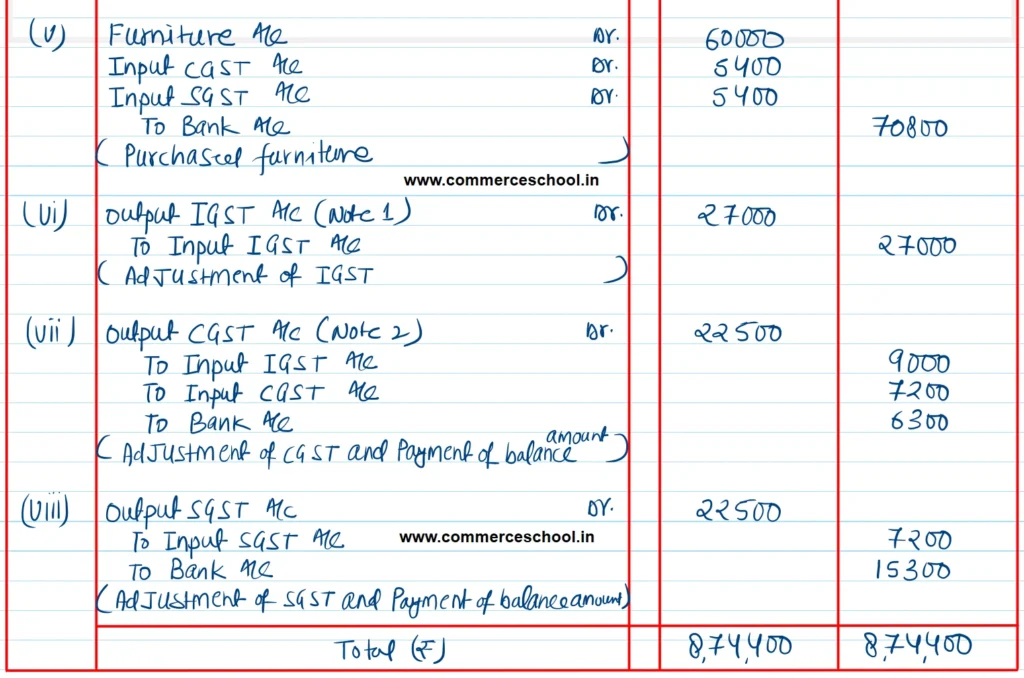 (v) Furniture A/c Dr. 60000
Input CGST A/c Dr. 5400
Input SGST A/c Dr. 5400
To Bank A/c 70800
(Purchased furniture)
www.commerceschool.in
(vi) Output IGST A/c (Note 1) Dr. 27000
To Input IGST A/c 27000
(Adjustment of IGST)
(vii) Output CGST A/c (Note 2) Dr. 22500
To Input IGST A/c 9000
To Input CGST A/c 7200
To Bank A/c 6300
(Adjustment of CGST and Payment of balance amount)
(viii) Output SGST A/c Dr. 22500
To Input SGST A/c 7200
www.commerceschool.in
To Bank A/c 15300
(Adjustment of SGST and Payment of balance amount)
Total (₹) 8,74,400 8,74,400